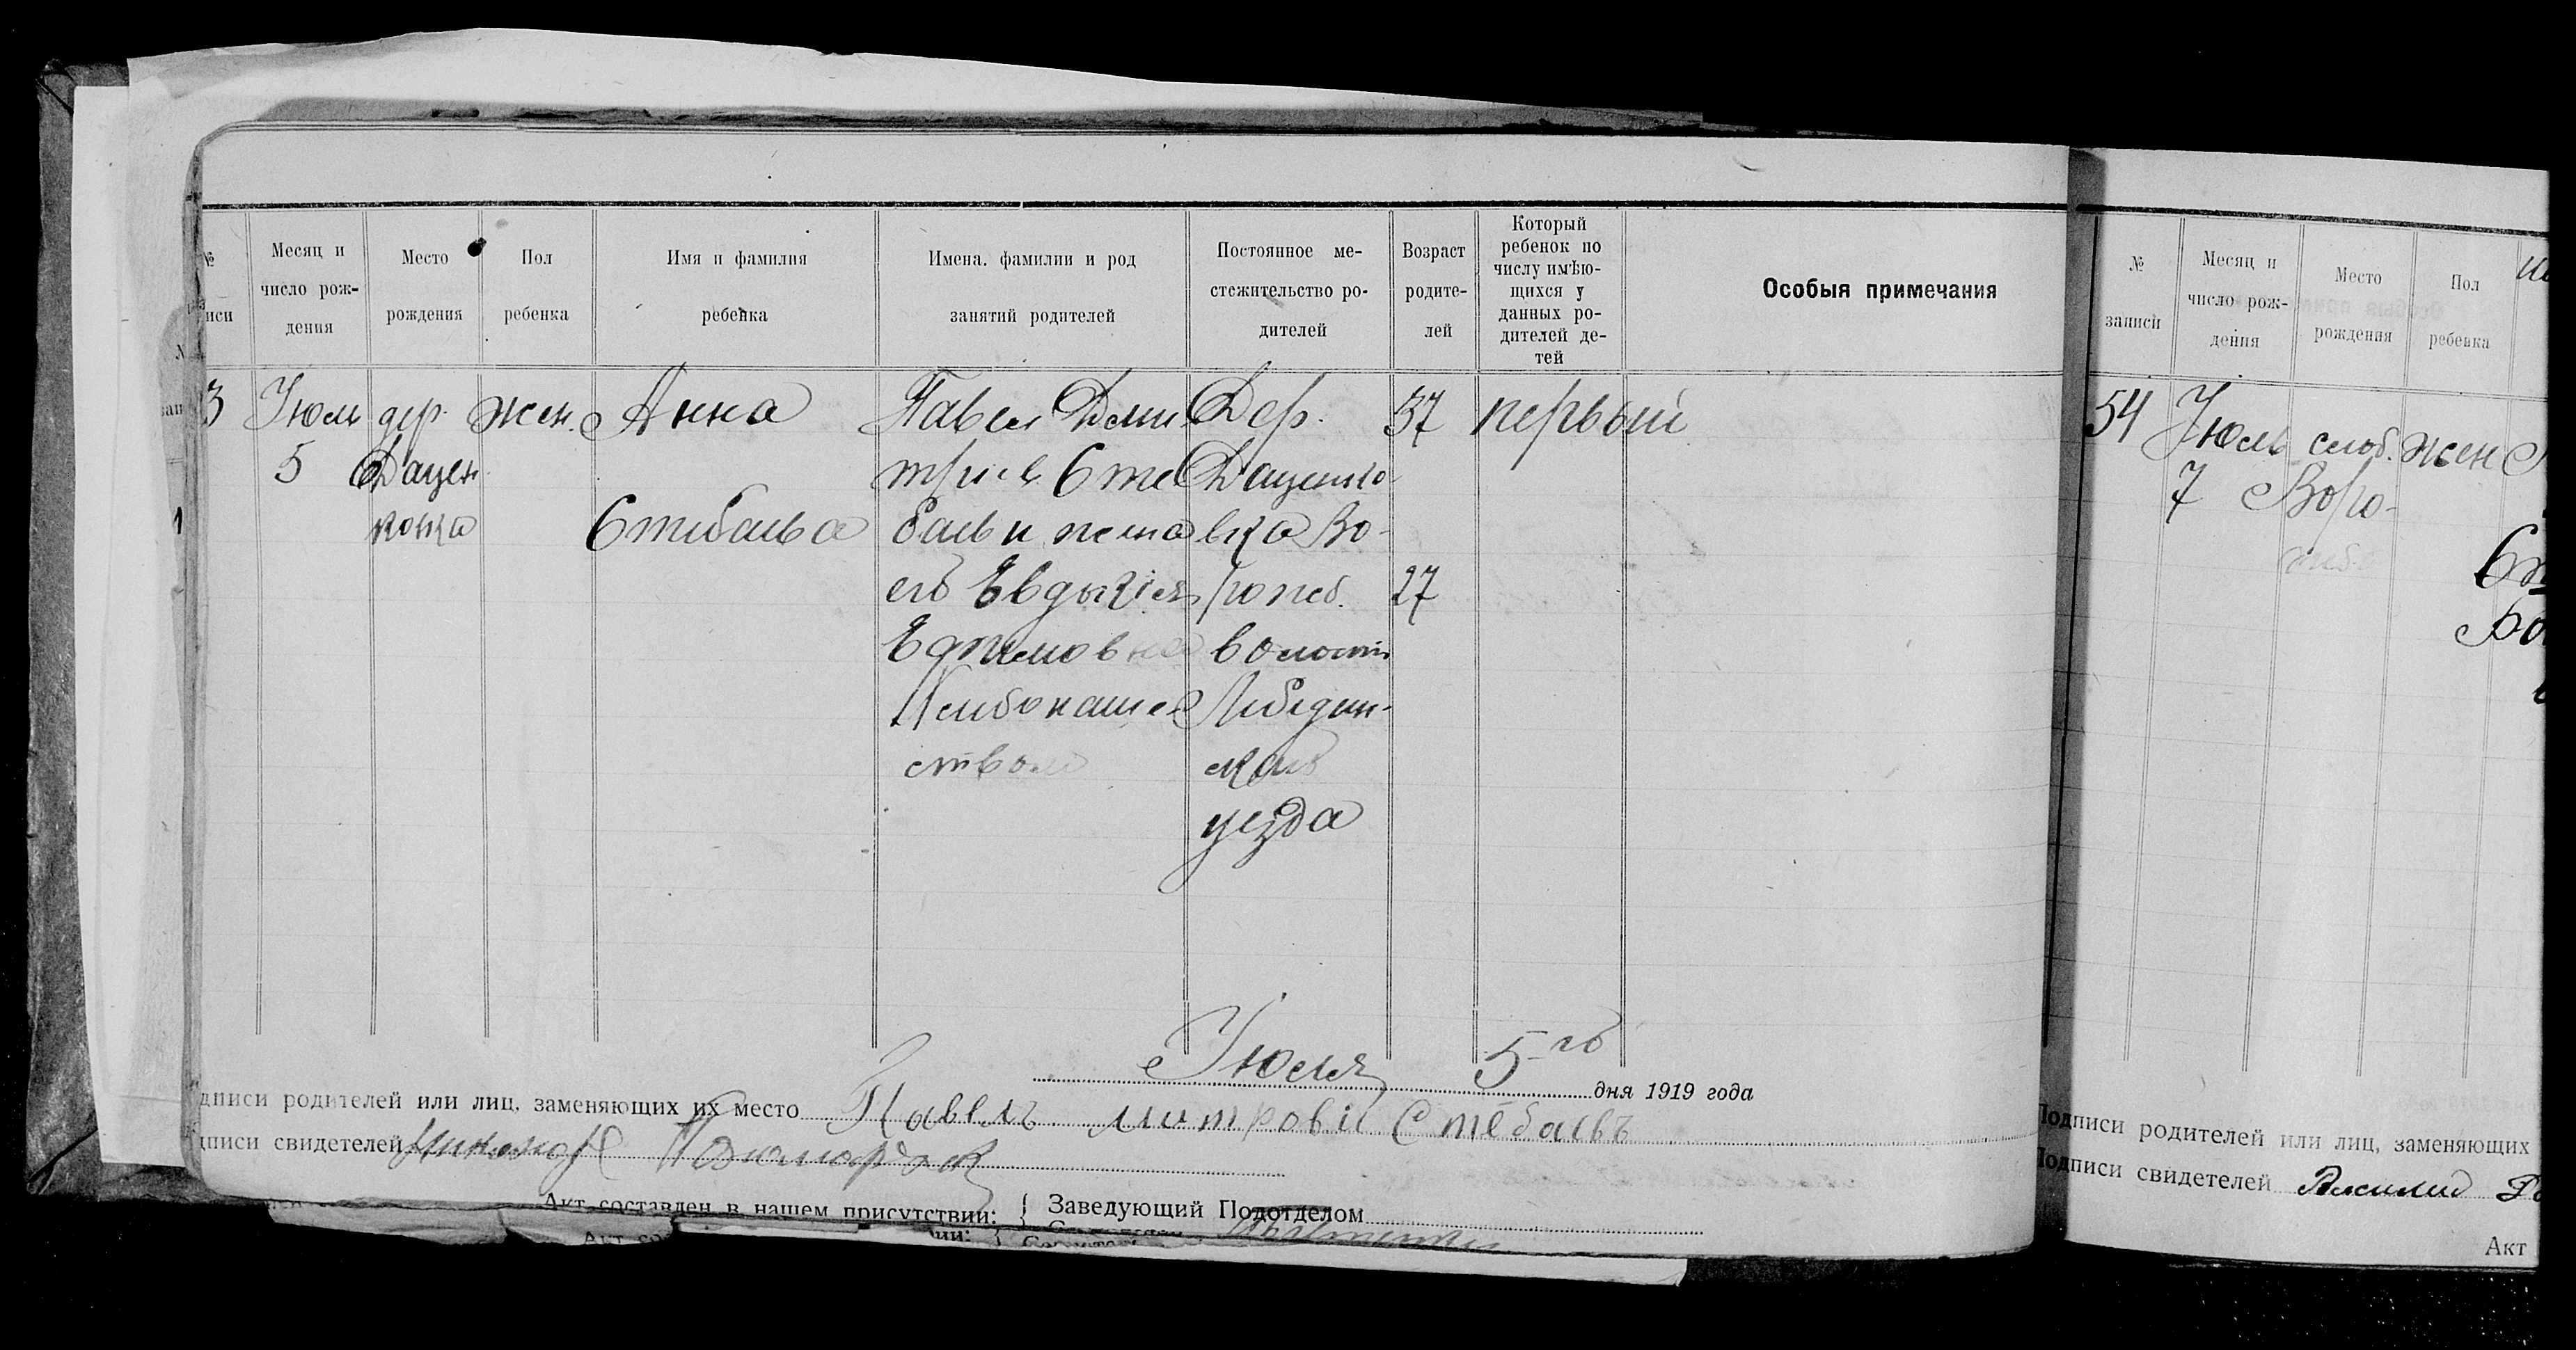 №
иси
Месяц и
число рож-
дения
Место
рождения
Пол
ребенка
Имя и фамилия
ребенка
Имена. фамилии и род
занятий родителей
Постоянное ме-
стожительство ро-
дителей
Возраст
родите-
лей
Который
ребенок по
числу имѣю-
щихся у
данных ро-
дителей де-
тей
Особыя примечания
3
Июль
5
дер.
Дацен
ковка
жен.
Анна
Стебаева
Павел Дми
триев Сте
баев и жена
его Евдокия
Ефимовна
Хлебопаше
ством
Дер.
Даценко
вка Во-
рожеб.
волости
Лебедин-
скаго
уезда
37
27
первый
Июля 5-го дня 1919 года
дписи родителей или лиц, заменяющих их место Павелъ митрови Стебаевъ
дписи свидетелей
Акт составлен в нашем присутствии: Заведующий Подотделом
№
записи
Месяц и
число рож-
дения
Место
рождения
Пол
ребенка
54
Июль
7
слоб.
Воро-
жба
жен
Подписи родителей или лиц, заменяющих
Подписи свидетелей Василий
Акт